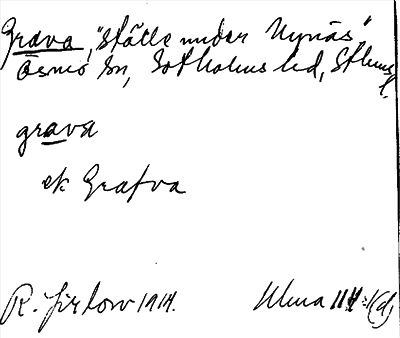 Grava, "ställe under Nynäs"
Ösmo sn, Sotholms hd, Sthlms
l.
grava
ek Grafva
R. Jirlow 1914. Ulma 114:1(d)